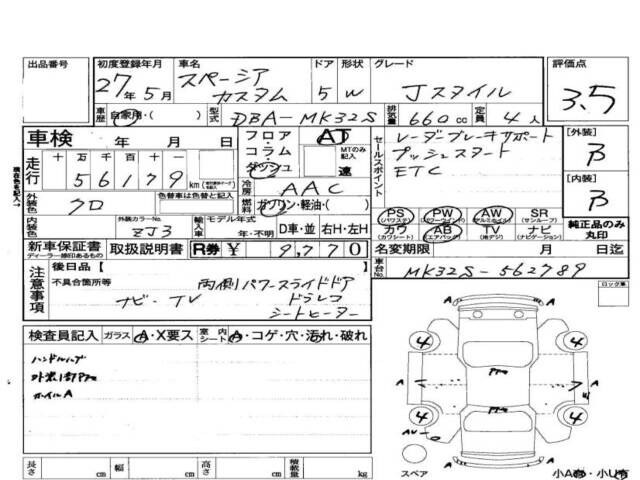 出品番号 初度登録年月 車名 ドア 形状 グレード 評価点
27年5月 スペーシア カスタム 5 W Jスタイル 3.5
車歴 自家用・( ) 型式 DBA-MK32S 排気量 660cc 定員 4人
車検 年 月 日 フロア・コラム・ダッシュ AT MTのみ記入 速
セールスポイント レーダーブレーキサポート
プッシュスタート
ETC
[外装] B
[内装] B
走行 十 万 千 百 十 一
56179 km
冷房 AAC
外装色 クロ 色替車は元色 燃料 ガソリン・軽油・( )
内装色 外装カラーNo. ZJ3 輸入車 モデル年式 年・不明 D車・並 右H・左H
PS (パワステ) PW (パワーウインド) AW (アルミホイル) SR (サンルーフ)
カワ (カワシート) AB (エアバック) TV (地デジ) ナビ (ナビゲーション)
純正品のみ丸印
新車保証書 ディーラー継印あるもの 取扱説明書 R券 ¥ 9,770 名変期限 月 日迄
車台No. MK32S-562789
注意事項 後日品[ ]
不具合箇所等 両側パワースライドドア
ナビ・TV ドラレコ
シートヒーター
ロック車
検査員記入 ガラス A・X要ス 室内シート A・コゲ・穴・汚れ・破れ
ホイルA
4 4
A A A
4 4
A A
スペア 小A有・小U有
長さ cm 幅 cm 高さ cm 積載量 kg